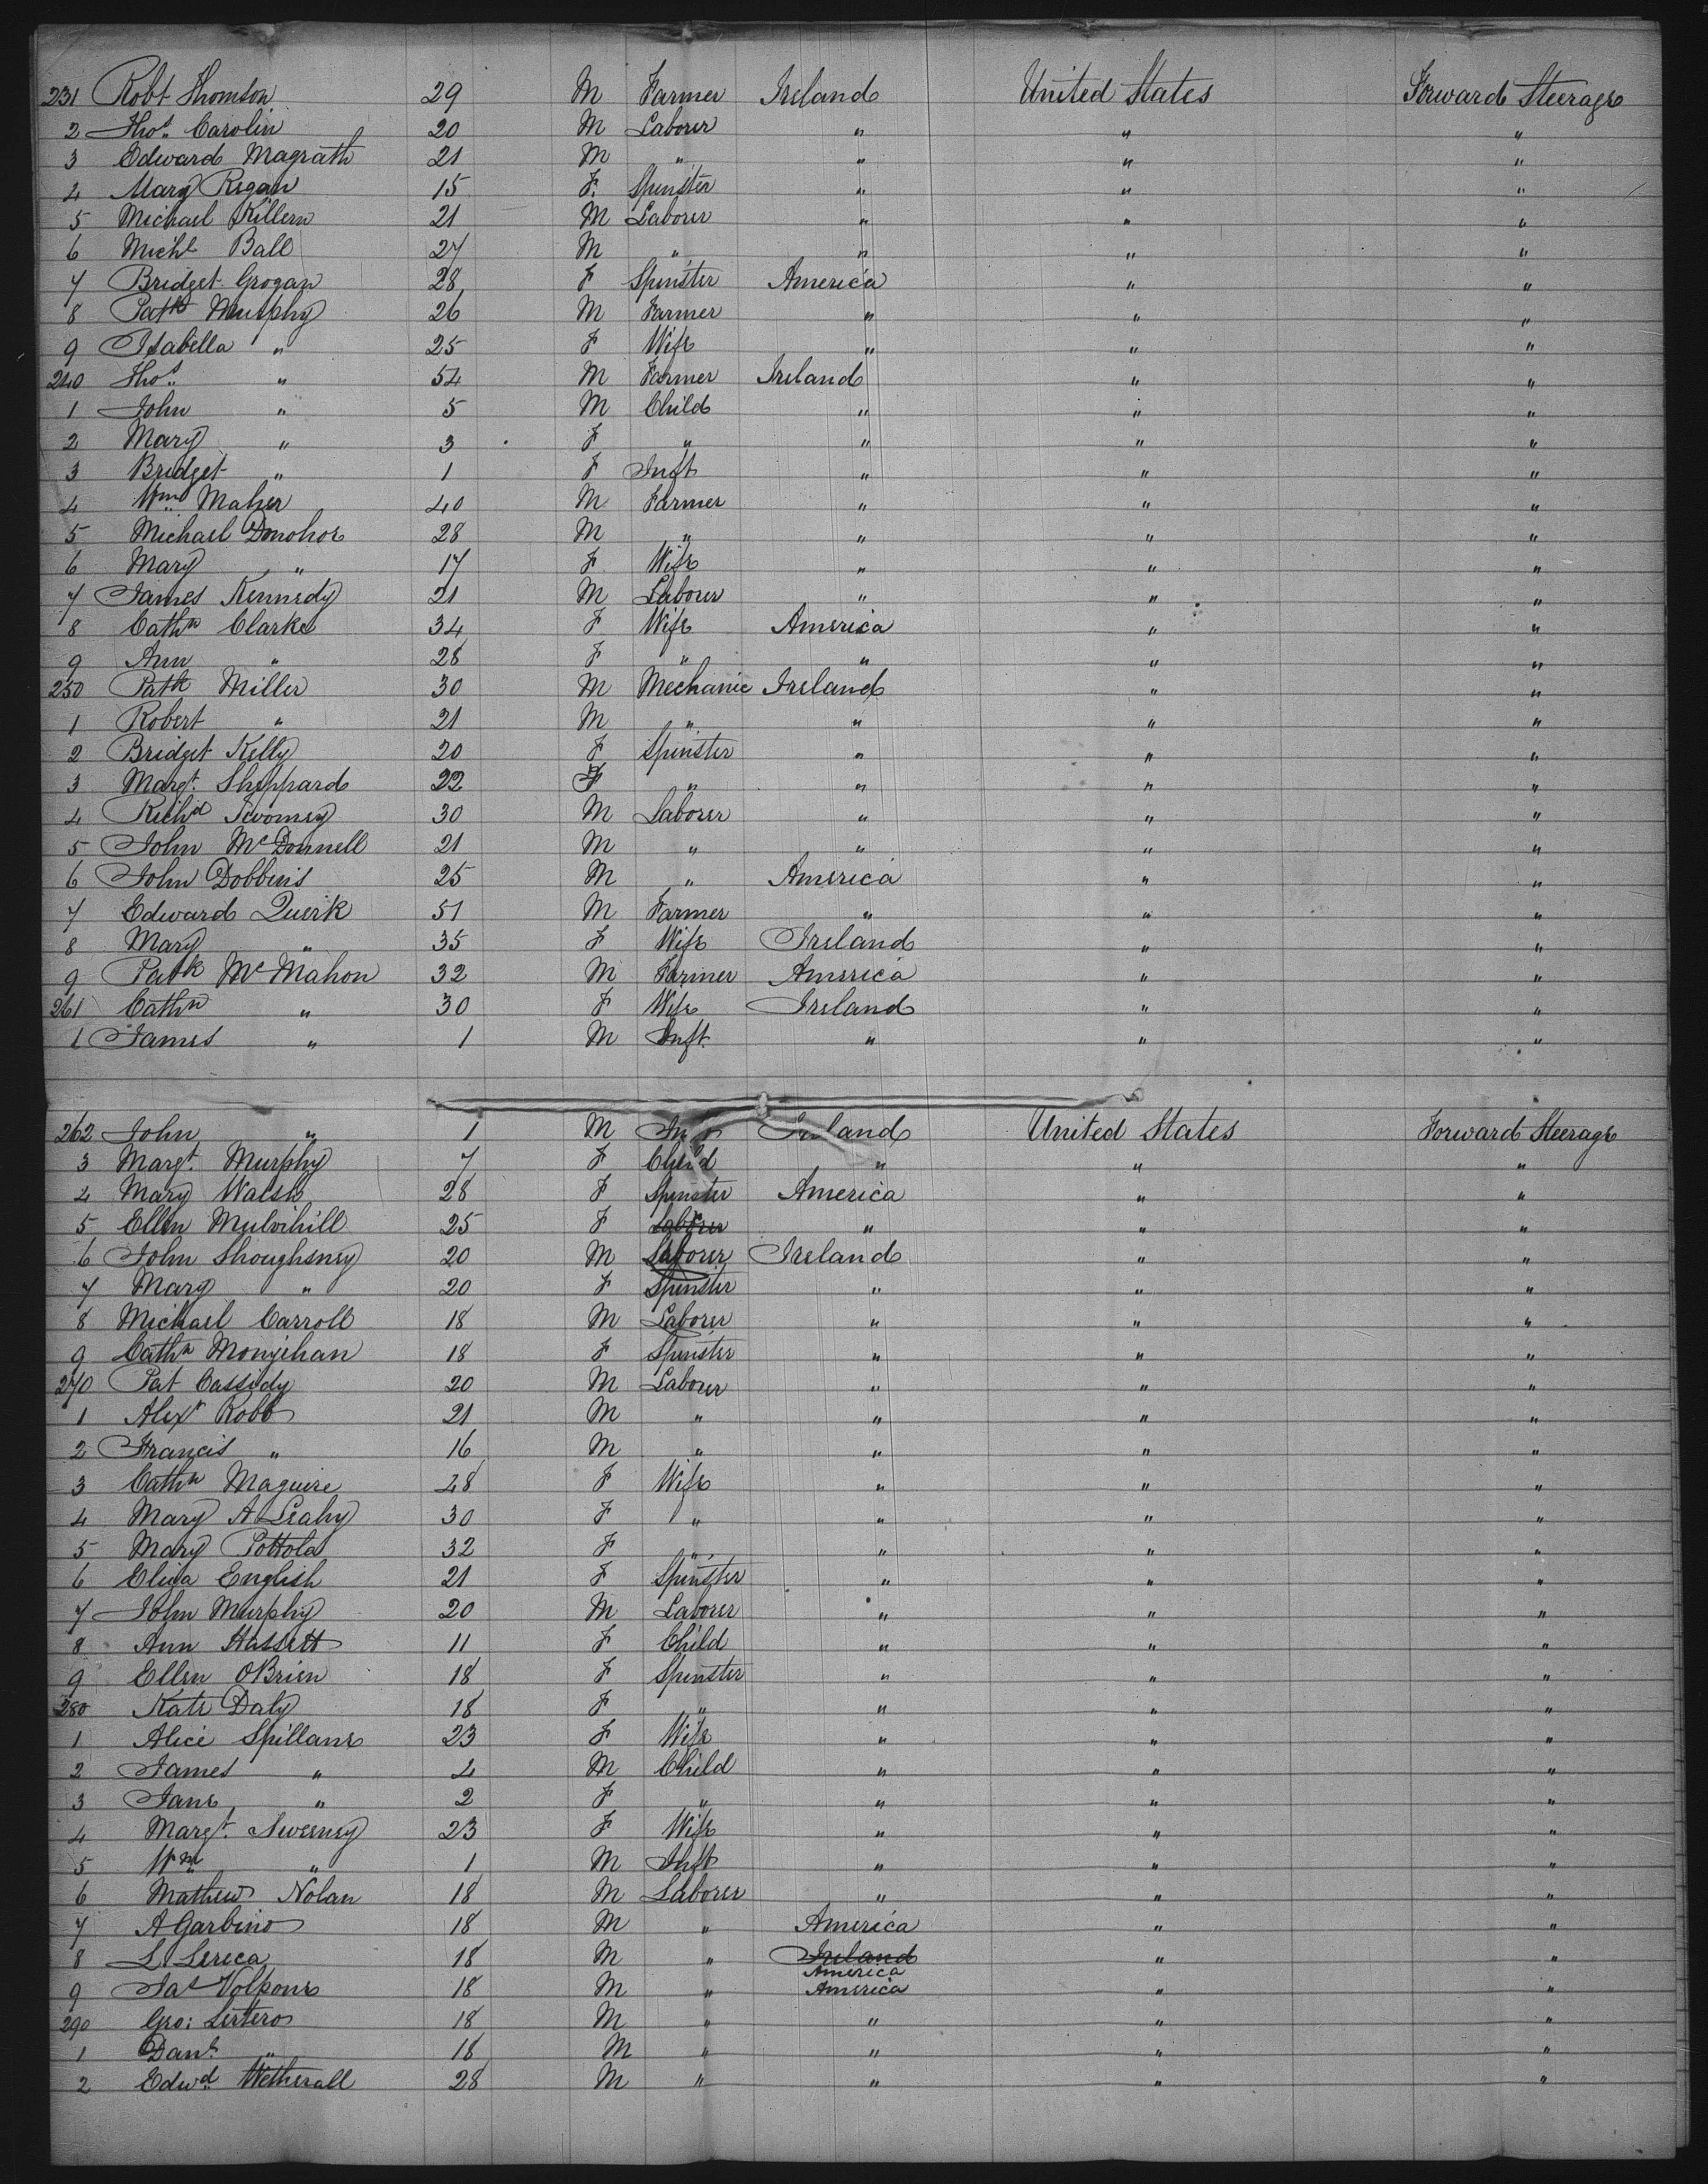 231 Robt Thomson 29 M Farmer Ireland United States Forward Steerage
2 Thos. Carolin 20 M Laborer " " "
3 Edward Magrath 21 M " " " "
4 Mary Regan 15 F. Spinster " " "
5 Michael Killern 21 M Laborer " " "
6 Michl Ball 27 M " " " "
7 Bridget Grogan 28 F Spinster America " "
8 Patk Murphy 26 M Farmer " " "
9 Isabella " 25 F Wife " " "
240 Thos. " 54 M Farmer Ireland " "
1 John " 5 M Child " " "
2 Mary " 3 F " " " "
3 Bridget " 1 F Inft " " "
4 Wm. Maher 40 M Farmer " " "
5 Michael Donohoe 28 M " " " "
6 Mary " 17 F Wife " " "
7 James Kennedy 21 M Laborer " " "
8 Cathn Clarke 34 F Wife America " "
9 Ann " 28 F " " " "
250 Patk Miller 30 M Mechanic Ireland " "
1 Robert " 21 M " " " "
2 Bridget Kelly 20 F Spinster " " "
3 Margt. Sheppard 22 F " " " "
4 Richd Twomey 30 M Laborer " " "
5 John McDonnell 21 M " " " "
6 John Dobbins 25 M " America " "
7 Edward Querk 51 M Farmer " " "
8 Mary " 35 F Wife Ireland " "
9 Patk McMahon 32 M Farmer America " "
261 Cathn " 30 F Wife Ireland " "
1 James " 1 M Inft. " " "
262 John " 1 M Ireland United States Forward Steerage
3 Margt. Murphy 7 F Child " " "
4 Mary Walsh 28 F Spinster America " "
5 Ellen Mulvihill 25 F Laborer " " "
6 John Shoughsney 20 M Laborer Ireland " "
7 Mary " 20 F Spinster " " "
8 Michael Carroll 18 M Laborer " " "
9 Cathn Monyihan 18 F Spinster " " "
270 Pat Cassidy 20 M Laborer " " "
1 Alexr Robb 21 M " " " "
2 Francis " 16 M " " " "
3 Cathn Maguire 28 F Wife " " "
4 Mary A Leahy 30 F " " " "
5 Mary Pottola 32 F " " " "
6 Eliza English 21 F Spinster " " "
7 John Murphy 20 M Laborer " " "
8 Ann Hassett 11 F Child " " "
9 Ellen OBrien 18 F Spinster " " "
280 Kate Daly 18 F " " " "
1 Alice Spillane 23 F Wife " " "
2 James " 4 M Child " " "
3 Jane " 2 F " " " "
4 Margt. Sweeney 23 F Wife " " "
5 Wm " 1 M Inft " " "
6 Mathew Nolan 18 M Laborer " " "
7 A Garbino 18 M " America " "
8 L Lereca 18 M " Ireland " "
America
9 Jas Volpone 18 M " America " "
290 Geo: Lertero 18 M " " " "
1 Danl. " 18 M " " " "
2 Edwd. Wetherall 28 M " " " "